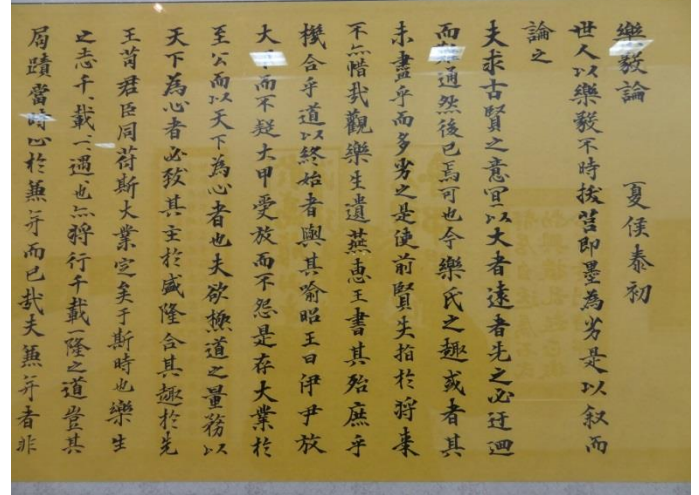 樂毅論 夏侯泰初
世人以樂毅不時拔莒即墨為劣是以叙而
論之
夫求古賢之意宜以大者遠者先之必迂迴
而難通然後已焉可也今樂氏之趣或者其
未盡乎而多劣之是使前賢失指於將来
不亦惜哉觀樂生遺燕惠王書其殆庶乎
機合乎道以終始者與其喻昭王曰伊尹放
大甲而不疑大甲受放而不怨是存大業於
至公而以天下為心者也夫欲極道之量務以
天下為心者必致其主於盛隆合其趣於先
王苟君臣同荷斯大業定矣于斯時也樂生
之志千載一遇也亦將行千載一隆之道豈其
局蹟當時心於兼并而已哉夫兼并者非